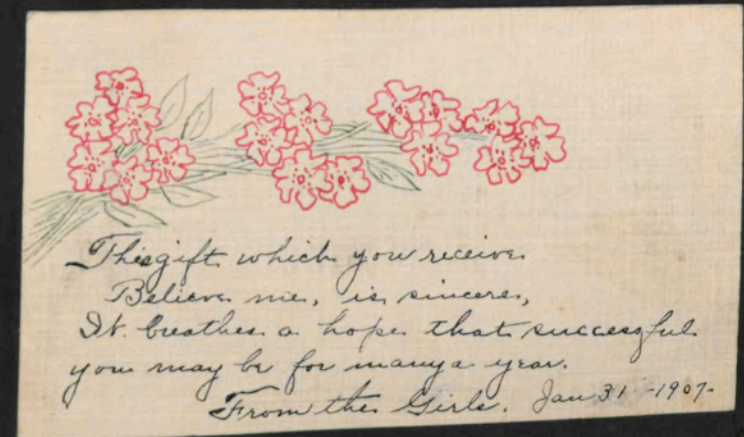 This gift which you receive
Believe me, is sincere,
It breathes a hope that successful
you may be for many a year.
From the Girls. Jan 31 - 1907-